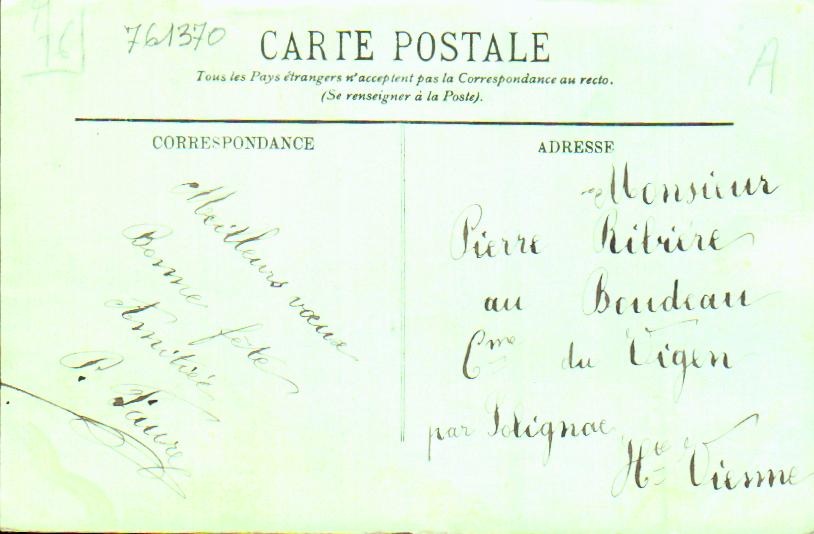 76
761370
A
CARTE POSTALE
Tous les Pays étrangers n'acceptent pas la Correspondance au recto.
(Se renseigner à la Poste).
CORRESPONDANCE
Meilleurs vœux
Bonne fête
Amitiés
P. Faure
ADRESSE
Monsieur
Pierre Ribière
au Boudeau
Cme du Vigen
par Solignac
Hte Vienne